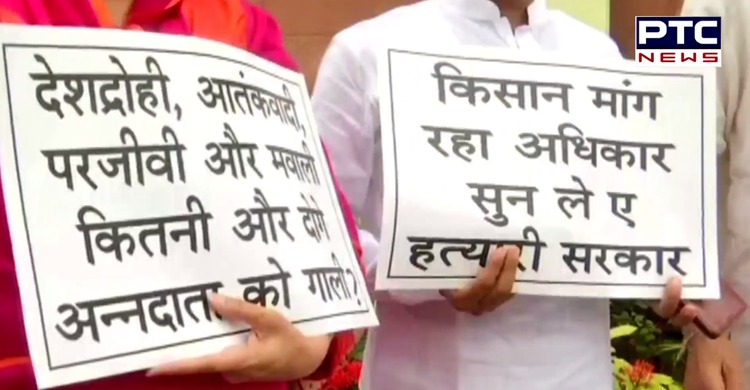 देशद्रोही, आतंकवादी,
परजीवी और मवाली
कितनी और दोगे
अन्नदाता को गाली?
किसान मांग
रहा अधिकार
सुन ले ए
हत्यारी सरकार
PTC
NEWS